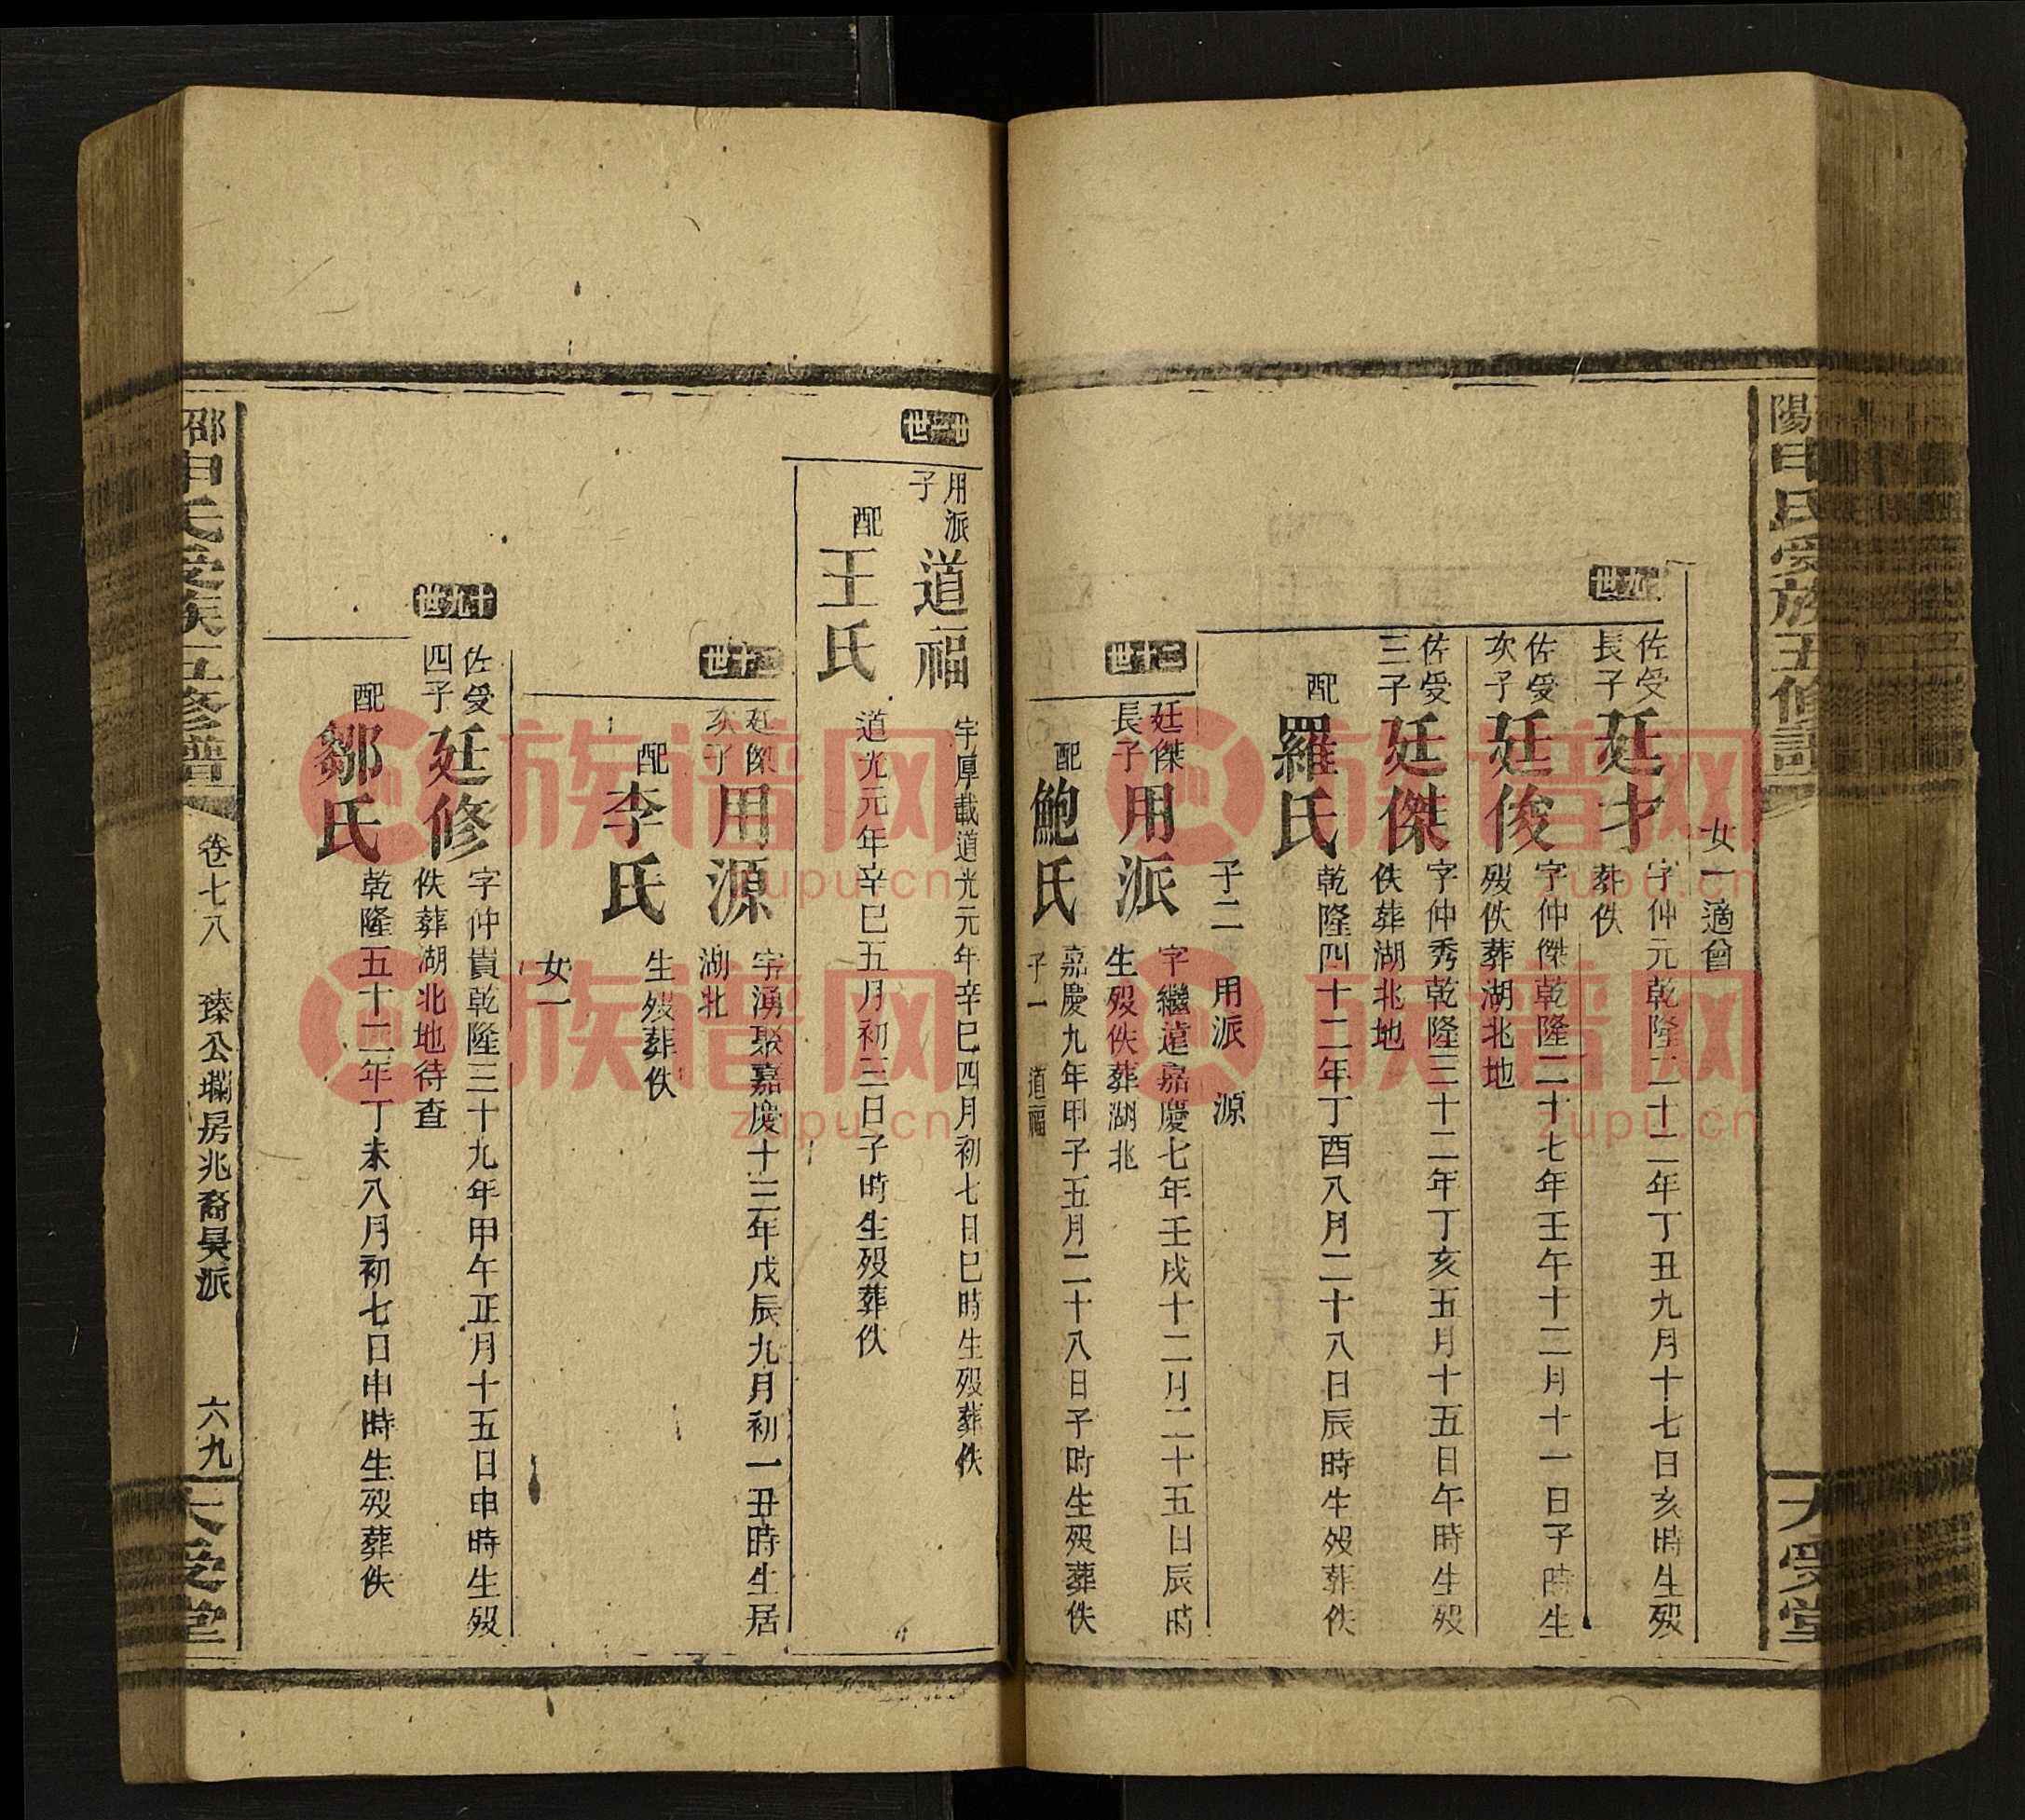 陽申氏受族五修譜
大受堂
女一適曾
十九世
佐受長子
廷才
字仲元乾隆二十二年丁丑九月十七日亥時生歿
葬佚
佐受次子
廷俊
字仲傑乾隆二十七年壬午十二月十一日子時生
歿佚葬湖北地
佐受三子
廷傑
字仲秀乾隆三十二年丁亥五月十五日午時生歿
佚葬湖北地
配羅氏
乾隆四十二年丁酉八月二十八日辰時生歿葬佚
子二 用派 源
二十世
廷傑長子
用派
字繼遠嘉慶七年壬戌十二月二十五日辰時
生歿佚葬湖北
配鮑氏
嘉慶九年甲子五月二十八日子時生歿葬佚
子一 道福
廿一世
用派子
道福
字厚載道光元年辛巳四月初七日巳時生歿葬佚
配王氏
道光元年辛巳五月初三日子時生歿葬佚
二十世
廷傑次子
用源
字湧聚嘉慶十三年戊辰九月初一丑時生居
湖北
配李氏
生歿葬佚
女一
十九世
佐受四子
廷修
字仲貴乾隆三十九年甲午正月十五日申時生歿
佚葬湖北地待查
配鄒氏
乾隆五十二年丁未八月初七日申時生歿葬佚
邵申氏受族五修譜
卷七八 臻公墹房兆裔昊派 六九
大受堂
族谱网
zupu.cn
族谱网
zupu.cn
族谱网
zupu.cn
族谱网
zupu.cn